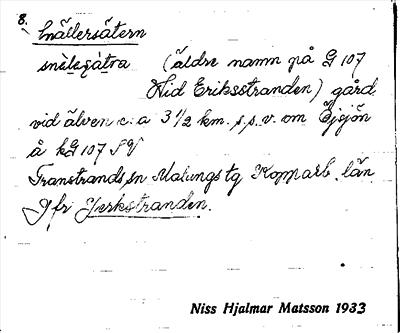 8.
Snällersätern
snèḷẹṣàṭra (äldre namn på G 107
Wid Eriksstranden) gård
vid älven c:a 3 1/2 km. s.s.v. om Öjsjön
å kG 107 SV
Transtrands sn Malungs tg Kopparb. län
Jfr Jerkstranden.
Niss Hjalmar Matsson 1933